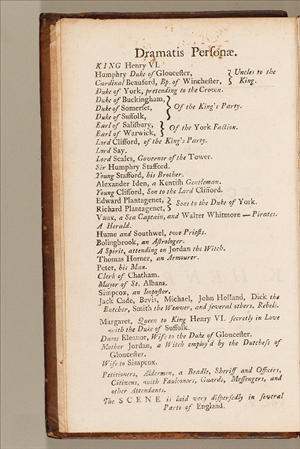 Dramatis Personæ.
KING Henry VI.
Humphry Duke of Gloucester, } Uncles to the
Cardinal Beauford, Bp. of Winchester, } King.
Duke of York, pretending to the Crown.
Duke of Buckingham,
Duke of Somerset, } Of the King's Party.
Duke of Suffolk,
Earl of Salisbury, } Of the York Faction.
Earl of Warwick,
Lord Clifford, of the King's Party.
Lord Say.
Lord Scales, Governor of the Tower.
Sir Humphry Stafford.
Young Stafford, his Brother.
Alexander Iden, a Kentish Gentleman.
Young Clifford, Son to the Lord Clifford.
Edward Plantagenet, } Sons to the Duke of York.
Richard Plantagenet,
Vaux, a Sea Captain, and Walter Whitmore — Pirates.
A Herald.
Hume and Southwel, two Priests.
Bolingbrook, an Astrologer.
A Spirit, attending on Jordan the Witch.
Thomas Horner, an Armourer.
Peter, his Man.
Clerk of Chatham.
Mayor of St. Albans.
Simpcox, an Impostor.
Jack Cade, Bevis, Michael, John Holland, Dick the
Butcher, Smith the Weaver, and several others, Rebels.
Margaret, Queen to King Henry VI. secretly in Love
with the Duke of Suffolk.
Dame Eleanor, Wife to the Duke of Gloucester.
Mother Jordan, a Witch employ'd by the Dutchess of
Gloucester.
Wife to Simpcox.
Petitioners, Aldermen, a Beadle, Sheriff and Officers,
Citizens, with Faulconers, Guards, Messengers, and
other Attendants.
The SCENE is laid very dispersedly in several
Parts of England.